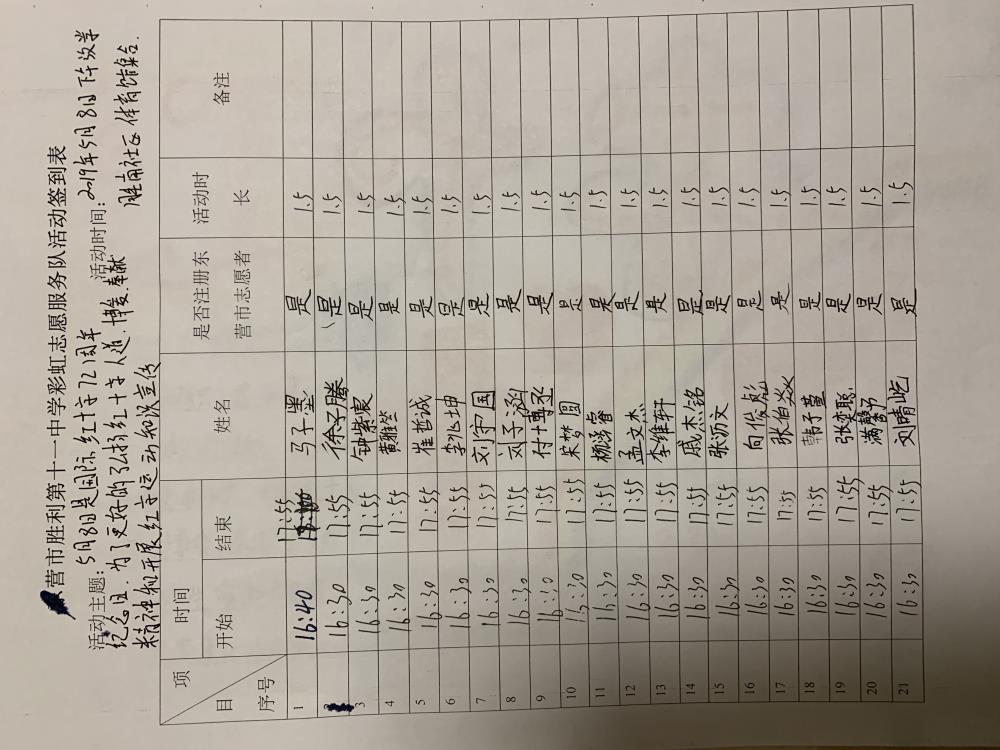 营市胜利第十一中学彩虹志愿服务队活动签到表
活动主题: 5月8日是国际红十字72周年 活动时间: 2019年5月8日下午放学
纪念日. 为了更好的弘扬红十字人道.博爱.奉献 胜南社区体育馆集合.
精神和开展红十字运动知识宣传
项目 序号 时间 姓名 是否注册东营市志愿者 活动时长 备注
开始 结束
1 16:40 17:55 马子墨 是 1.5
16:30 17:55 徐子腾 是 1.5
3 16:30 17:55 钟紫宸 是 1.5
4 16:30 17:55 黄雅竺 是 1.5
5 16:30 17:55 崔哲诚 是 1.5
6 16:30 17:55 李兆坤 是 1.5
7 16:30 17:55 刘守国 是 1.5
8 16:30 17:55 刘子涵 是 1.5
9 16:30 17:55 付博丞 是 1.5
10 16:30 17:55 宋梦圆 是 1.5
11 16:30 17:55 杨泽睿 是 1.5
12 16:30 17:55 孟文杰 是 1.5
13 16:30 17:55 李维轩 是 1.5
14 16:30 17:55 戚杰铭 是 1.5
15 16:30 17:55 张沥文 是 1.5
16 16:30 17:55 向俊彪 是 1.5
17 16:30 17:55 张柏焱 是 1.5
18 16:30 17:55 韩子萱 是 1.5
19 16:30 17:55 张奕聪 是 1.5
20 16:30 17:55 满馨予 是 1.5
21 16:30 17:55 刘晴屹 是 1.5